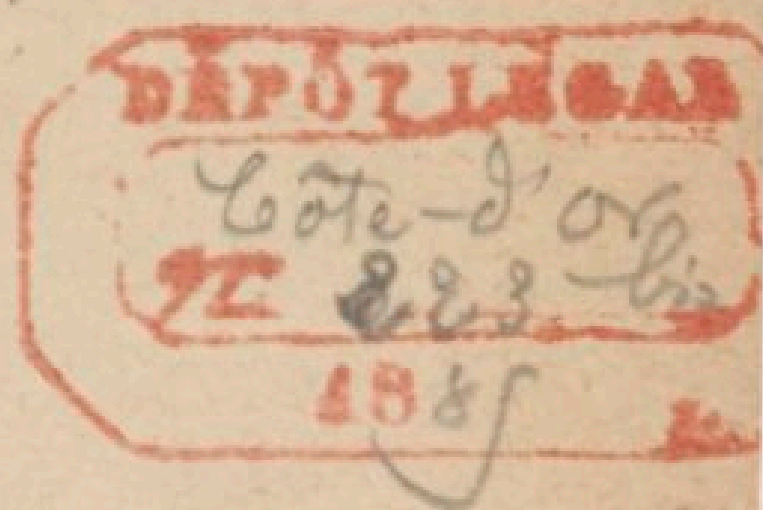 DÉPÔT LÉGAL
Côte-d'or
N° 223 bis
1885